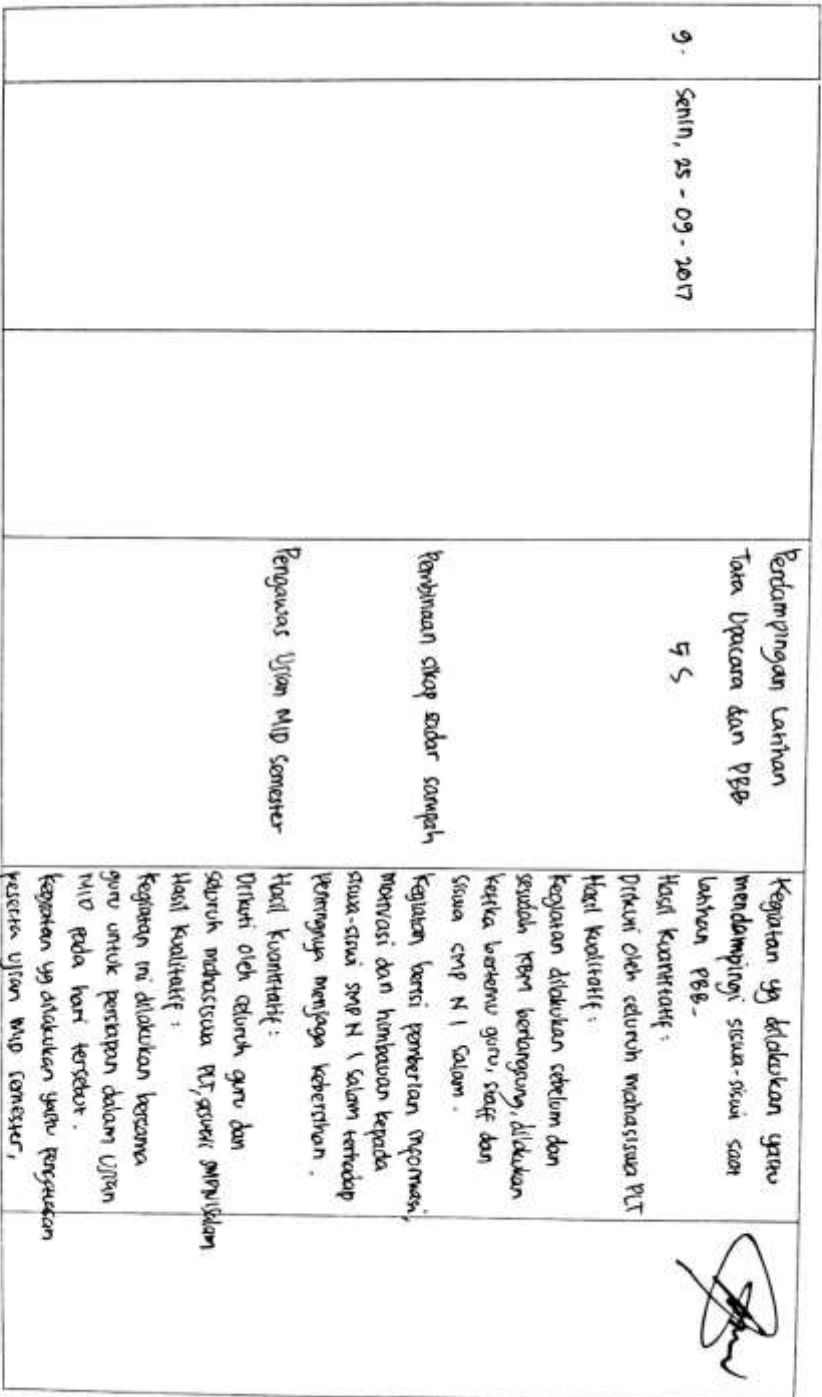 Pendampingan Latihan
Tata Upacara dan PBB
Kegiatan yg dilakukan yaitu
mendampingi siswa-siswi saat
latihan PBB.
9.
Senin, 25 - 09 - 2017
5 S
Hasil kuantitatif :
Diikuti oleh seluruh mahasiswa PLT
Hasil kualitatif :
Kegiatan dilakukan sebelum dan
sesudah KBM berlangsung, dilakukan
ketika bertemu guru, staff dan
siswa SMP N 1 Salam.
Pembinaan sikap sadar sampah
Kegiatan berisi pemberian informasi,
motivasi dan himbauan kepada
siswa-siswi SMP N 1 Salam terhadap
pentingnya menjaga kebersihan.
Pengawas Ujian MID Semester
Hasil kuantitatif :
Diikuti oleh seluruh guru dan
seluruh mahasiswa PLT, SMPN 1 Salam
Hasil kualitatif :
Kegiatan ini dilakukan bersama
guru untuk persiapan dalam Ujian
MID pada hari tersebut.
Kegiatan yg dilakukan yaitu pengawasan
peserta ujian MID semester,